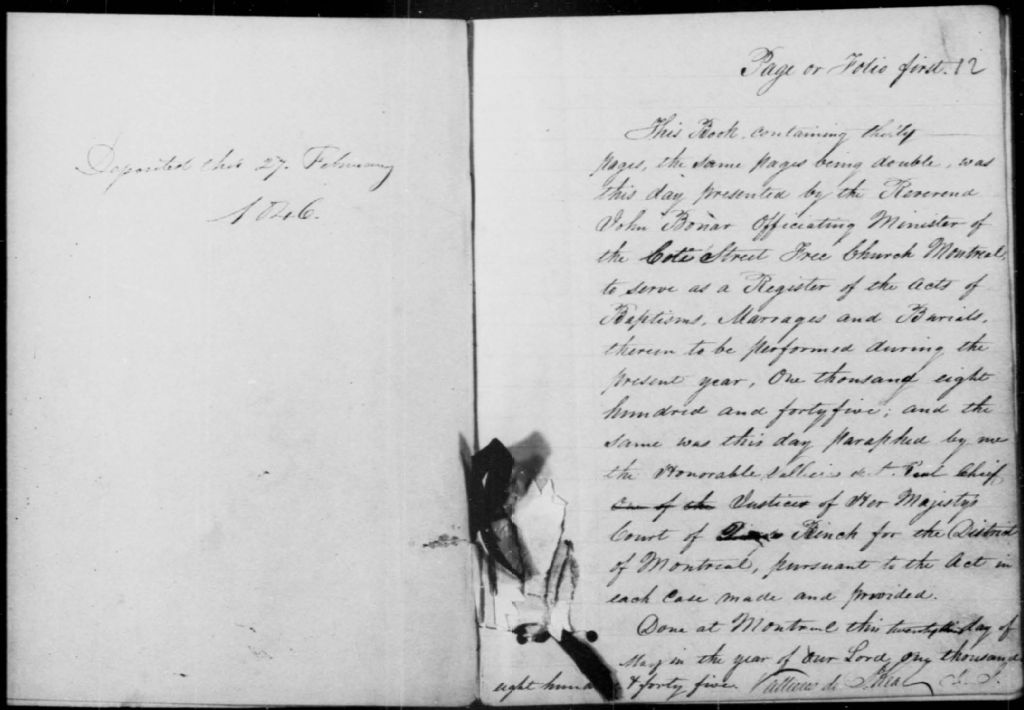 Deposited this 27. February
1846.
Page or Folio first. 12
This Book containing thirty
pages, the same pages being double, was
this day presented by the Reverend
John Bonar Officiating Minister of
the Coté Street Free Church Montreal,
to serve as a Register of the acts of
Baptisms, Marrages and Burials,
therein to be performed during the
present year, One thousand eight
hundred and fortyfive; and the
same was this day paraphed by me
the Honorable Vallieres de St. Real Chief
One of the Justices of Her Majestys
Court of Bench for the District
of Montreal, pursuant to the Act in
each case made and provided.
Done at Montreal this day of
May in the year of Our Lord, one thousand
eight hund & forty five. Vallieres de St Real C. J.